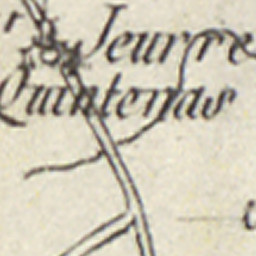 Jeurre
Quintenas